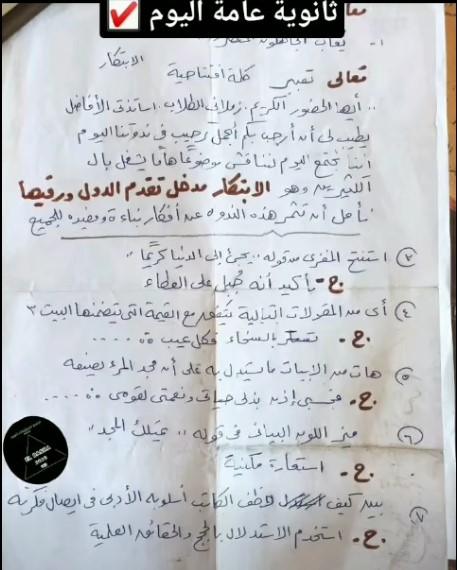 ثانوية عامة اليوم ✔
معا
١- يعاب الجاهلون
الابتكار
تعالى تعبير كلمة افتتاحية
،، أيها الحضور الكريم. زملائى الطلاب. اساتذتى الأفاضل
يطيب لى أن أرحب بكم أجمل ترحيب فى ندوتنا اليوم
اننا نجتمع اليوم لنناقش موضوعا هاما يشغل بال
الكثيرين وهو الابتكار مدخل تقدم الدول ورقيها
نأمل أن تثمر هذه الندوه عن أفكار بناءة ومفيده للجميع
٣) استنتج المغزى من قوله ،، يجئ إلى الدنيا كريما ،،
ج - تأكيد أنه جُبل على العطاء
٤) أى من المقولات التالية يتفق مع القيمة التى تتضمنها البيت ٣
ج. تستر بالسخاء فكل عيب ....
٥) هات من الابيات ما يستدل به على أن مجد المرء يصنعه
ج. فحسبى إذن بذلى حياتى ومهجتى لقومى ....
٦) ميز اللون البيانى فى قوله ،، المجد ،،
ج. استعارة مكنية
٧) بين كيف وظف الكاتب أسلوبه الأدبى فى ايصال فكرته
ج. استخدم الاستدلال بالحجج والحقائق العلمية